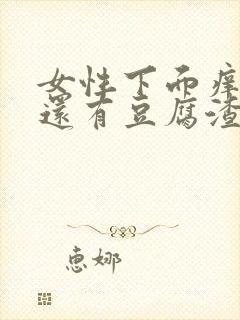 女性下面痒
还有豆腐渣
惠娜